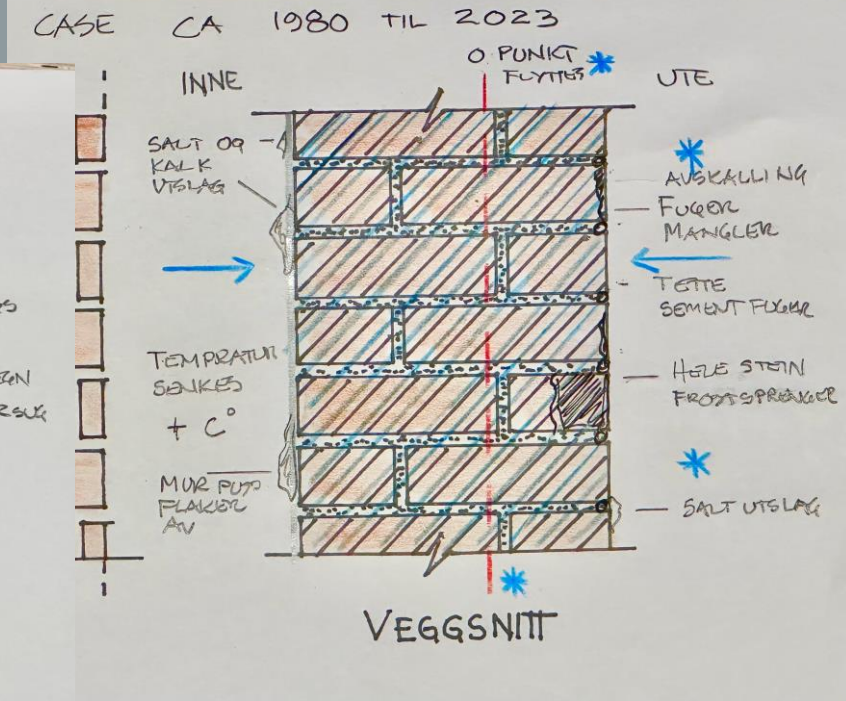 CASE CA 1980 TIL 2023
INNE
O PUNKT
FLYTTES
UTE
SALT OG
KALK
UTSLAG
AVSKALLING
FUGER
MANGLER
TETTE
SEMENT FUGER
TEMPRATUR
SENKES
+ C°
HELE STEIN
FROSTSPRENGER
MUR PUSS
FLAKER
AV
SALT UTSLAG
VEGGSNITT